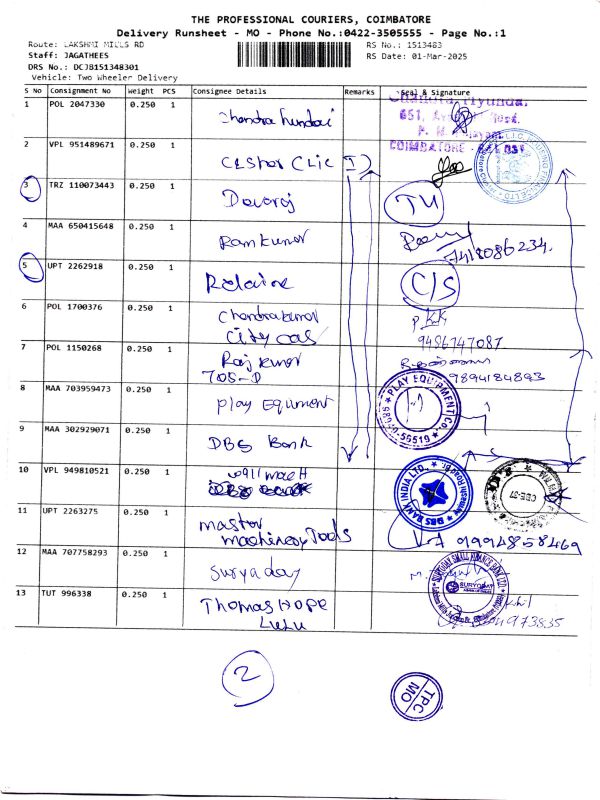 THE PROFESSIONAL COURIERS, COIMBATORE
Delivery Runsheet - MO - Phone No.:0422-3505555 - Page No.:1
Route: LAKSHMI MILLS RD
RS No.: 1513483
Staff: JAGATHEES
RS Date: 01-Mar-2025
DRS No.: DCJB151348301
Vehicle: Two Wheeler Delivery
S No Consignment No Weight PCS Consignee Details Remarks Seal & Signature
1 POL 2047330 0.250 1
651,
COIMBATORE
2 VPL 951489671 0.250 1
3 TRZ 110073443 0.250 1 Devaraj TU
4 MAA 650415648 0.250 1 Ramkumar
7418086234.
5 UPT 2262918 0.250 1 C/S
6 POL 1700376 0.250 1 Chandrakumar PKK
city gas 9486747087.
7 POL 1150268 0.250 1 Rajkumar
TOS-D 9894184893
8 MAA 703959473 0.250 1 Play Equment
PLAY EQUIPMENT CO.
9 MAA 302929071 0.250 1 DBS Bank
DBS BANK INDIA LTD.
10 VPL 949810521 0.250 1
CBE-37
11 UPT 2263275 0.250 1 mastor
machinery Tools 9994858469
12 MAA 707758293 0.250 1 Suryaday
SURYODAY SMALL FINANCE BANK LTD.
SURYODAY
13 TUT 996338 0.250 1 Thomas HOPE
LULU
2
TPC
MO